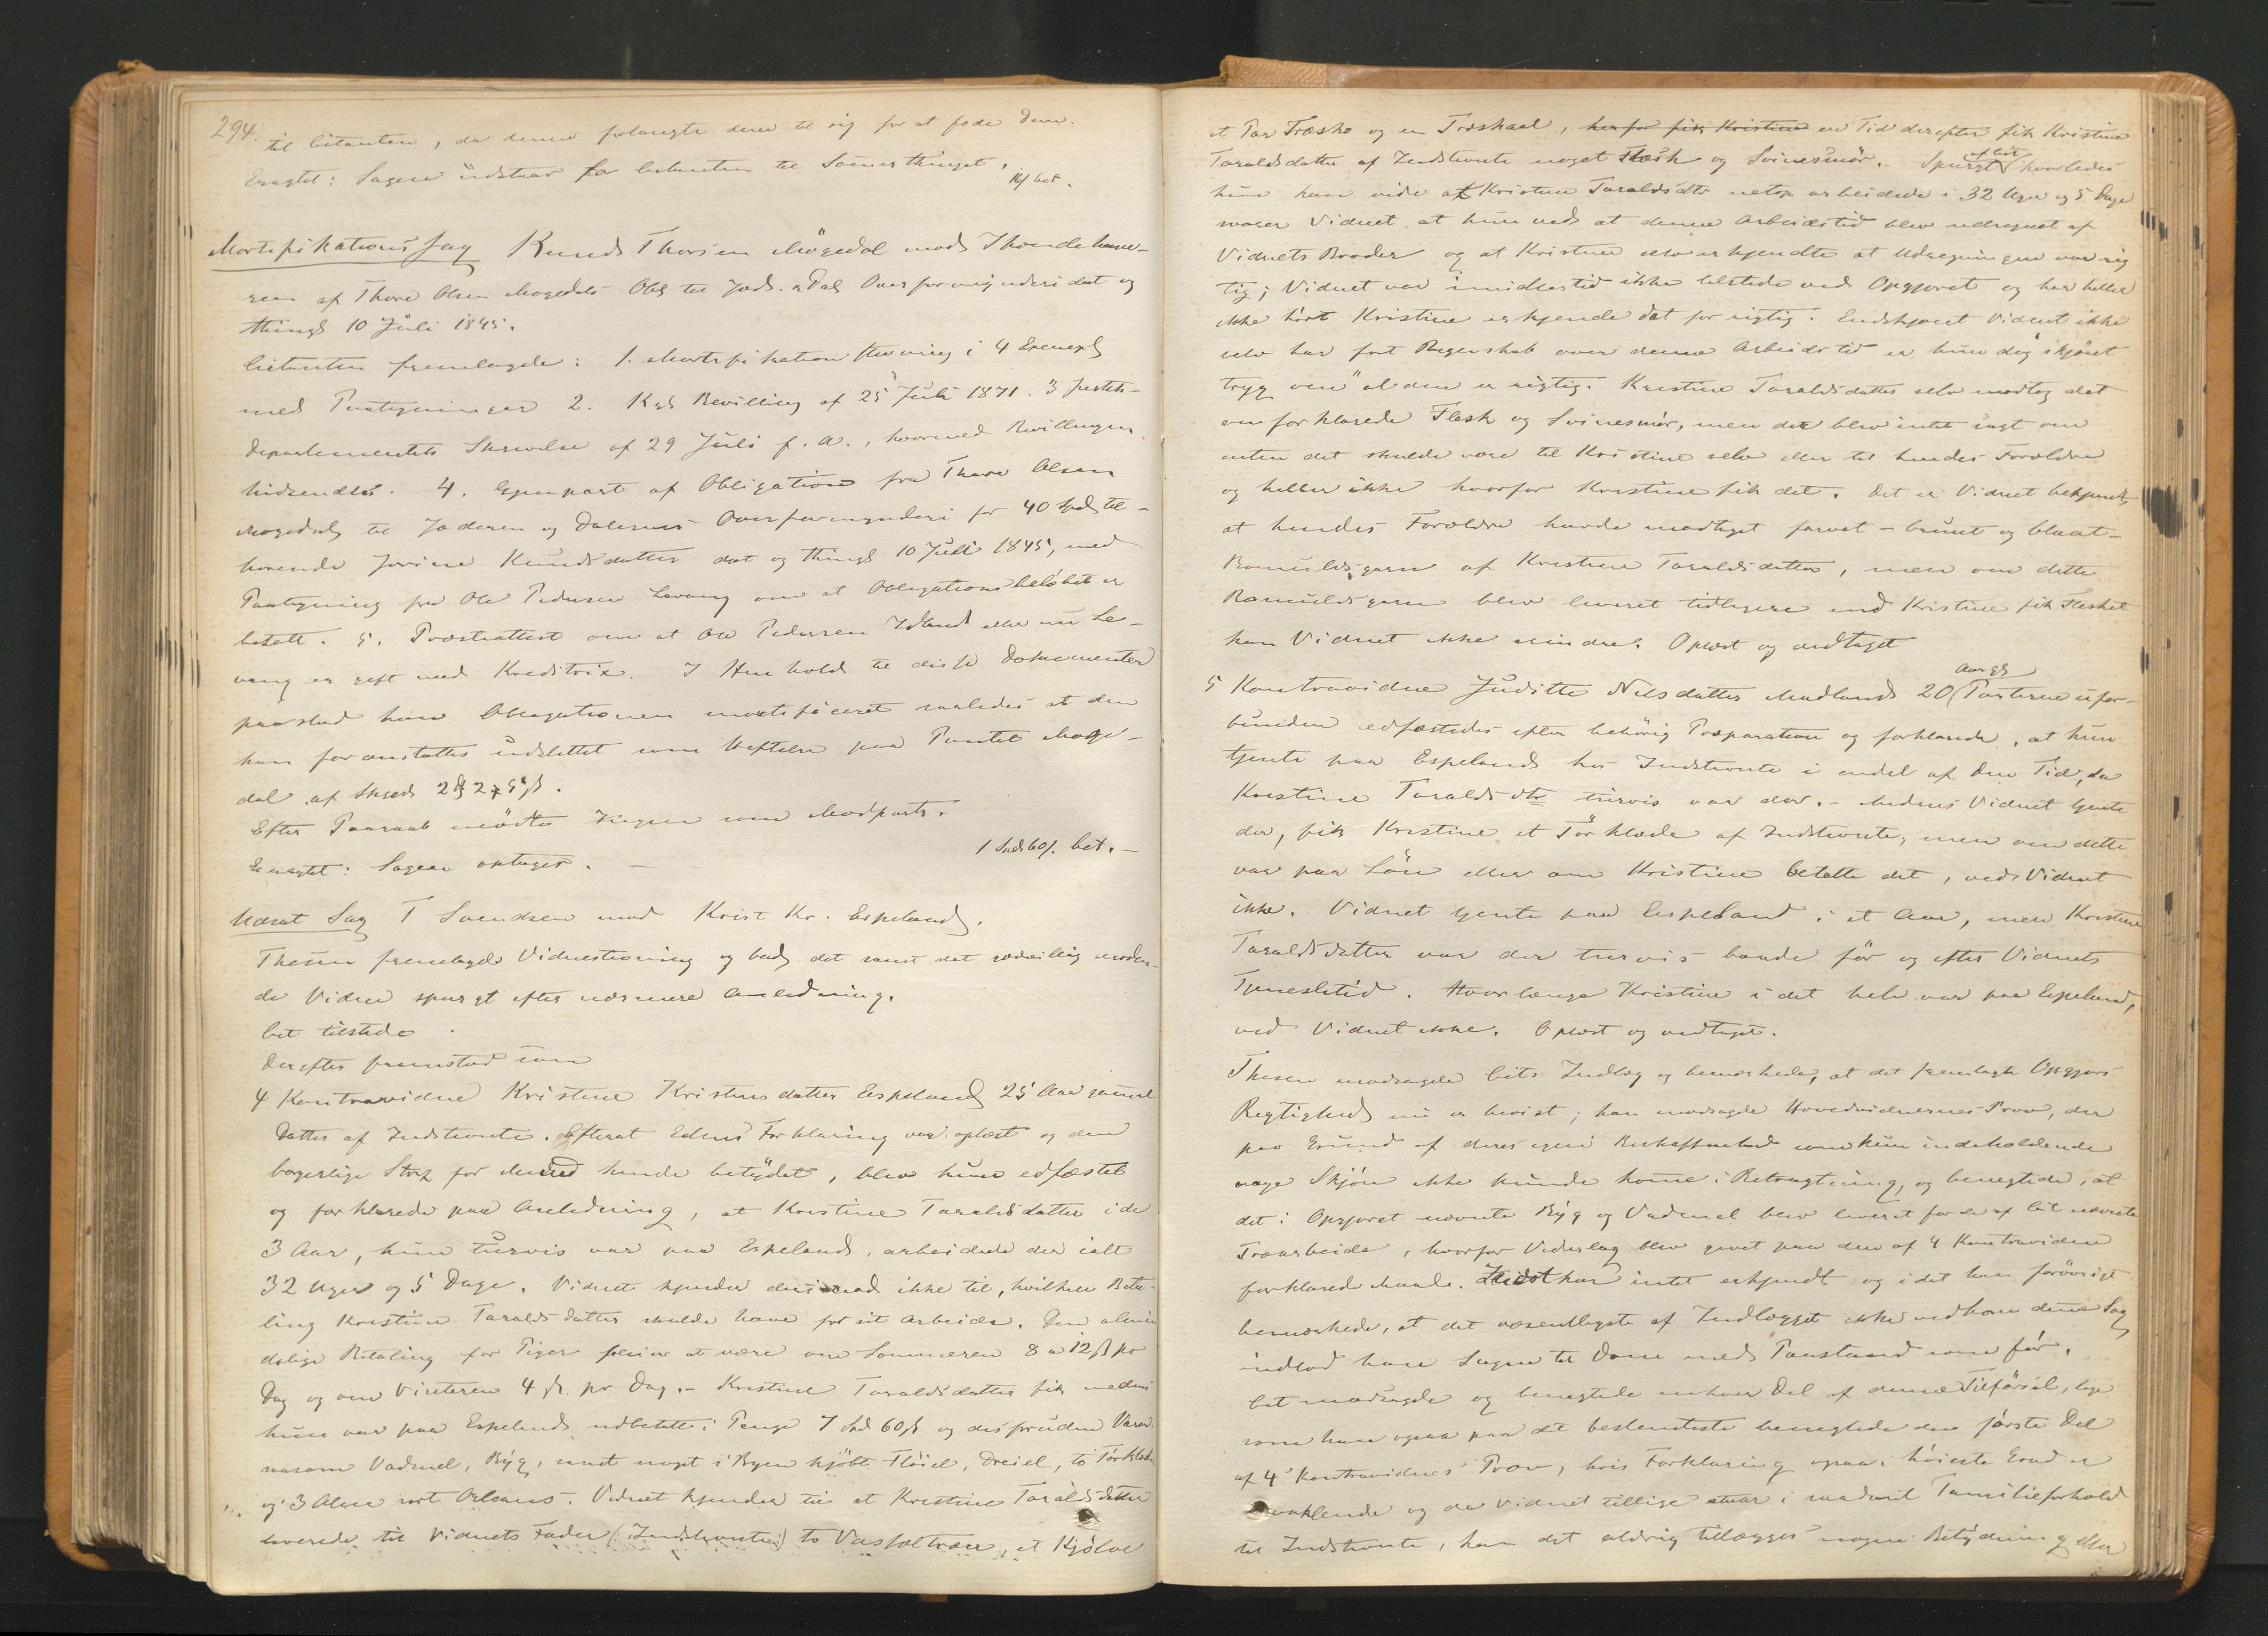 294.
til Citanten, da denne forlangte dem til sig for atføde dem.
Eragtet: Sagen udstaar for Citanten til Sommerthinget.
bet.
Mortifikations Sag Knud Thorsen Møgedal mod Ihændehave-
ren af Thore Olsen Mogedals Obl til Jæd. & Dal Overformynderi dat og
thingl 10 Juli 1845.
Citanten fremlagde: 1. Mortifikation stevning i 4 Exempl
med Paategninger 2. Kgl Bevilling af 25 Juli 1871. 3 Justits-
departementets Skrivelse af 29 Juli f. A., hvormed Bevillingen
hidsendtes. 4. Gjenpart af Obligation fra Thore Olsen
Mogedal til Jæderen og Dalernes Overformynderi for 40 Spd til-
hørende Jorine Knudsdatter dat og thingl 10 Juli 1845, med
Paategning fra Ole Pedersen Levang om at Obligationsbeløbet er
betalt. 5. Præsteattest om at Ole Pedersen Idland eller nu Le-
vang er gift med Kreditrix. I Henhold til disse Dokumenter
paastod han Obligationen mortificeret saaledes at den
kan foranstaltes udslettet som Heftelse paa Pantet Moge-
dal af Skyld
Efter Paaraab mødte Ingen som Modpart.
Eragtet: Sagen optages. —
1 Spd 60 s. bet. —
Udsat Sag T Svendsen mod Krist Kr. Espeland.
Thesen fremlagde Vidnestevning og bad det samt det rødvillig møden-
de Vidne spurgt efter nærmere Anledning.
Cit tilstede.
Derefter fremstod som
4 Kontravidne Kristine Kristensdatter Espeland 25 Aar gammel
Datter af Indstevnte. Efterat Edens Forklaring var oplæst og den
borgerlige Straf for Meened hende betydet, blev hun edfæstet
og forklarede paa Anledning, at Kristine Taraldsdatter i de
3 Aar, hun turvis var paa Espeland, arbeidede der ialt
32 Uger og 5 Dage. Vidnet kjender derimod ikke til, hvilken Beta-
ling Kristine Taraldsdatter skulde have for sit Arbeide. Den almin
delige Betaling for Piger pleier at være om Sommeren 8 a 12 s pr
Dag og om Vinteren 4 s. pr. Dag. - Kristine Taraldsdatter fik medens
hun var paa Espeland udbetalt i Penge 7 Spd 60 s og desforuden Varer
saasom Vadmel, Byg, samt noget i Byen kjøbt Fløiel, Dreiel, to Tørklæder
og 3 Alen sort Orleans. Vidnet kjender til at Kristine Taraldsdatter
leverede til Vidnets Fader (Indstevnte) to Vassæltrær, et Kjølve
et Par Træsko og en Træskaal, herfor fik Kristine en Tid derefter fik Kristine
Taraldsdatter af Indstevnte noget Flæsk og Svinesmør. - Spurgt af Cit hvorledes
hun kan vide at Kristine Taraldsdtr netop arbeidede i 32 Uger og 5 Dage
svarer Vidnet, at hun ved at denne Arbeidstid blev udregnet af
Vidnets Broder og at Kristine selv erkjendte at Udregningen var rig
tig; Vidnet var imidlertid ikke tilstede ved Opgjøret og har heller
ikke hørt Kristine erkjende det for rigtig. Endskjønt Vidnet ikke
selv har ført Regnskab over denne Arbeidstid er hun dog skjønt
tryg om at den er rigtig. Kristine Taraldsdatter selv modtog det
omforklarede Flesk og Svinesmør, men der blev intet sagt om
enten det skulde være til Kristine selv eller til hendes Forældre
og heller ikke hvorfor Kristine fik det. Det er Vidnet bekjendt
at hendes Forældre havde modtaget farvet - brunt og blaat -
Bomuldsgarn af Kristine Taraldsdatter, men om dette
Bomuldsgarn blev leveret tidligere end Kristine fik Flesket
kan Vidnet ikke mindes. Oplæst og vedtaget
5 Kontravidne Juditte Nilsdatter Madland 20 Aar gl Parterne ufor-
bunden edfæstedes efter behørig Præparation og forklarede, at hun
tjente paa Espeland hos Indstevnte i endel af den Tid, da
Kristine Taraldsdtr turvis var der. - Medens Vidnet tjente
der, fik Kristine et Tørklæde af Indstevnte, men om dette
var paa Løn eller om Kristine betalte det, ved Vidnet
ikke. Vidnet tjente paa Espeland i et Aar, men Kristine
Taraldsdatter var der turvis baade før og efter Vidnets
Tjenestetid. Hvor længe Kristine i det hele var paa Espeland,
ved Vidnet ikke. Oplæst og vedtaget.
Thesen modsagde Cits Indlæg og bemærkede, at det fremlagte Opgjørs
Rigtighed nu er bevist; han modsagde Hovedvidnernes Prov, der
paa Grund af deres egen Beskaffenhed som kun indeholdende
vage Skjøn ikke kunde komme i Betragtning, og benegtede, at
det i Opgjøret nævnte Byg og Vadmel blev leveret for de af Cit nævnte
Træarbeide, hvorfor Vederlag blev givet paa den af 4 Kontravidne
forklarede Maade. Indst har intet erkjendt og idet han forøvrigt
bemærkede, at det væsentligste af Indlægget ikke vedkom denne Sag
indlod han Sagen til Dom med Paastand som før.
Cit modsagde og benegtede enhver Del af denne Tilførsel, lige
som han ogsaa paa det bestemteste benegtede den første Del
af 4 Kontravidnes Prov, hvis Forklaring ogsaa i høieste Grad er
vaklende og da Vidnet tillige staar i saadant Familieforhold
til Indstevnte, kan det aldrig tillægges nogen Betydning eller